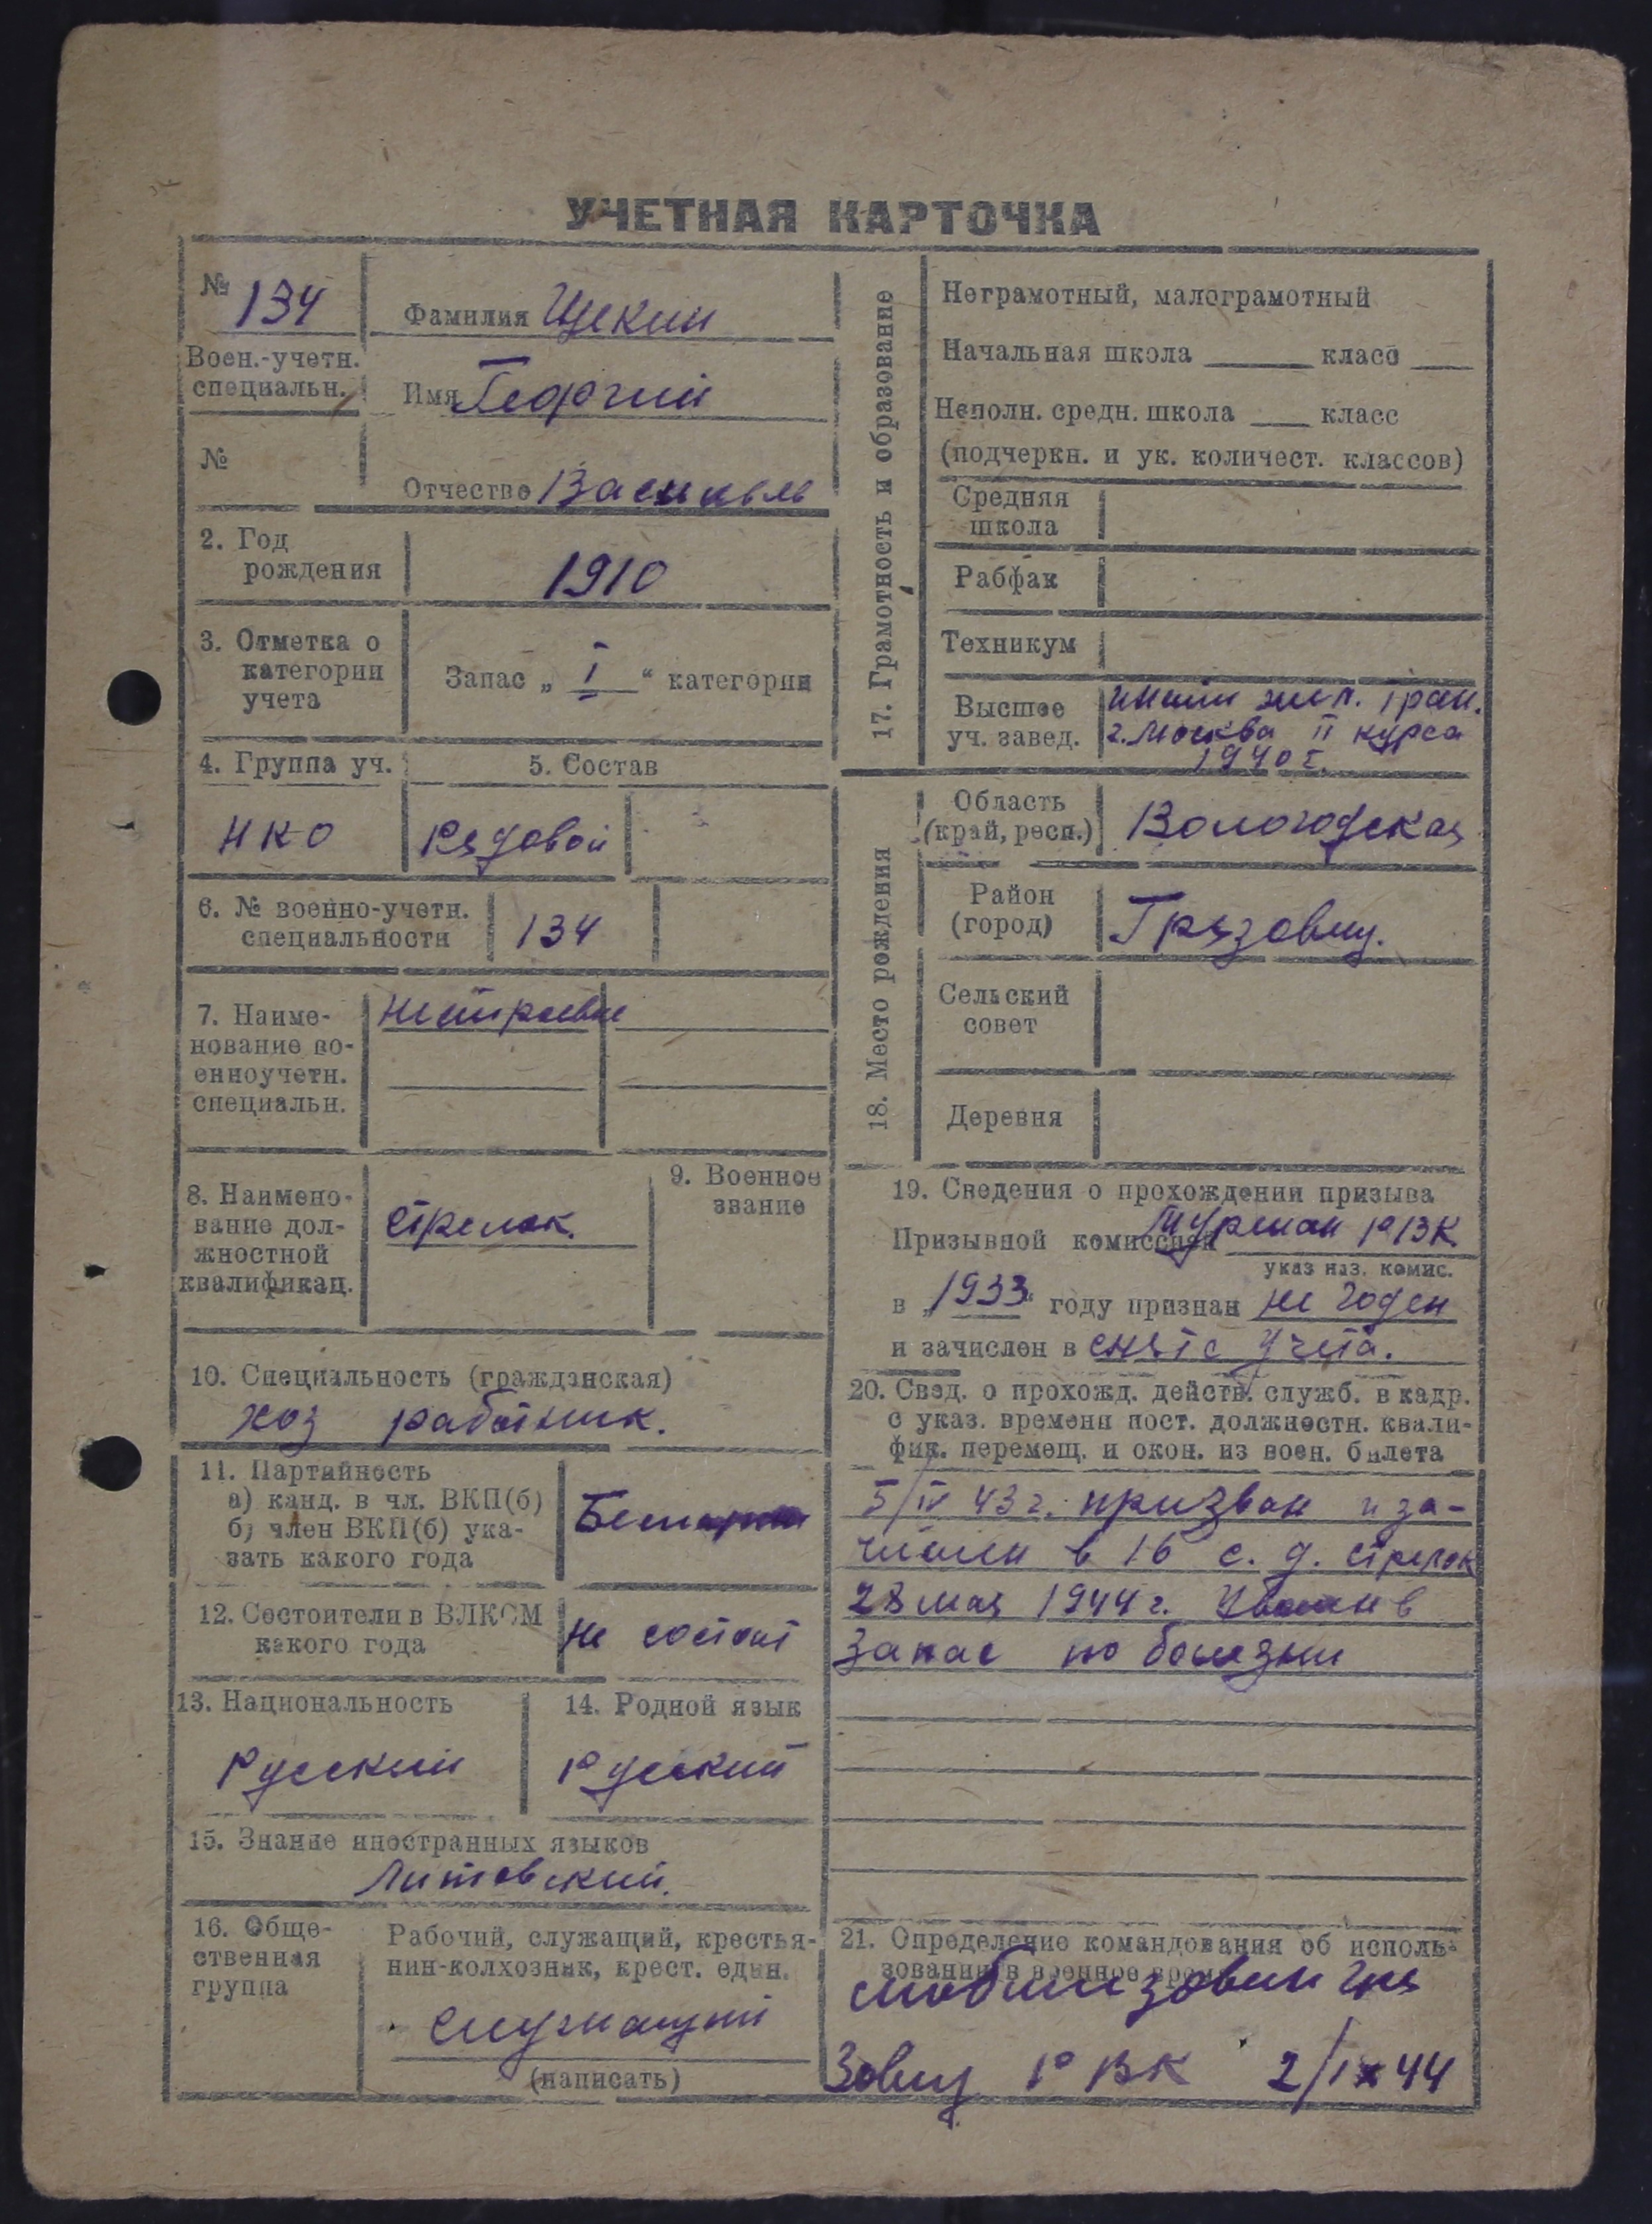 УЧЕТНАЯ КАРТОЧКА
№ 134
Фамилия Щекин
Воен.-учетн.
специальн.
Имя Георгий
№
Отчество Васильев
2. Год
рождения
1910
3. Отметка о
категории
учета
Запас „ I “ категории
4. Группа уч.
5. Состав
НКО
Рядовой
6. № военно-учетн.
специальности
134
7. Наиме-
нование во-
енноучетн.
специальн.
8. Наимено-
вание дол-
жностной
квалификац.
стрелок.
9. Военное
звание
10. Специальность (гражданская)
хоз работник.
11. Партийность
а) канд. в чл. ВКП(б)
б) член ВКП(б) ука-
зать какого года
12. Состоит ли в ВЛКСМ
какого года
не состоит
13. Национальность
Русский
14. Родной язык
Русский
15. Знание иностранных языков
Литовский.
16. Обще-
ственная
группа
Рабочий, служащий, крестья-
нин-колхозник, крест. един.
служащий
(написать)
17. Грамотность и образование
Неграмотный, малограмотный
Начальная школа класс
Неполн. средн. школа класс
(подчеркн. и ук. количест. классов)
Средняя
школа
Рабфак
Техникум
Высшее
уч. завед.
г. Москва II курса
1940 г.
18. Место рождения
Область
(край, респ.)
Вологодская
Район
(город)
Грязовец.
Сельский
совет
Деревня
19. Сведения о прохождении призыва
Призывной комиссией РВК
указ наз. комис.
в „1933“ году признан не годен
и зачислен в снят с учета.
20. Свед. о прохожд. действ. служб. в кадр.
с указ. времени пост. должностн. квали-
фик. перемещ. и окон. из воен. билета
5/IV 43 г. призван и за-
числен в 16 с. д. стрелок
28 мая 1944 г. Уволен в
запас по болезни
21. Определение командования об исполь-
зовании в военное время
мобилизован Гря
зовец РВК 2/IX 44